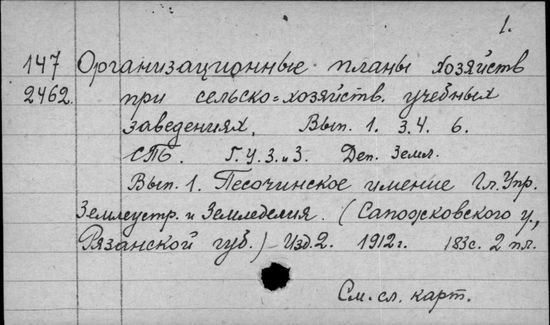 1.
147 Организационные планы хозяйств
2462. при сельско-хозяйств. учебных
заведениях. Вып. 1. 3.4. 6.
СПБ. Г.У.З.и З. Деп. Земл.
Вып. 1. Песочинское имение Гл. Упр.
Землеустр. и Земледелия. (Сапожковского у.,
Рязанской губ.) Изд. 2. 1912г. 183с. 2 пл.
См. сл. карт.